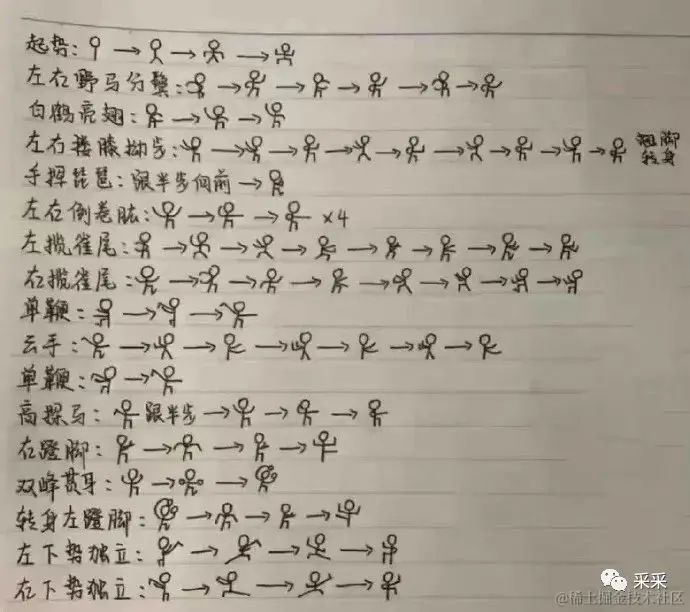 起势:
左右野马分鬃:
白鹤亮翅:
左右搂膝拗步: 翘脚
转身
手挥琵琶: 跟半步向前
左右倒卷肱: ×4
左揽雀尾:
右揽雀尾:
单鞭:
云手:
单鞭:
高探马: 跟半步
右蹬脚:
双峰贯耳:
转身左蹬脚:
左下势独立:
右下势独立:
采采
@稀土掘金技术社区